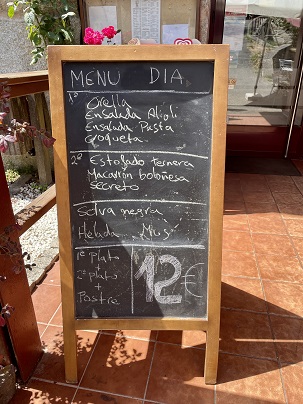 MENU DIA
1º Orella
Ensalada Alioli
Ensalada Pasta
Croqueta
2º Estofado ternera
Macarrón boloñesa
Secreto
Selva negra
Helado Mus
1º plato
2º plato
+
Postre
12€